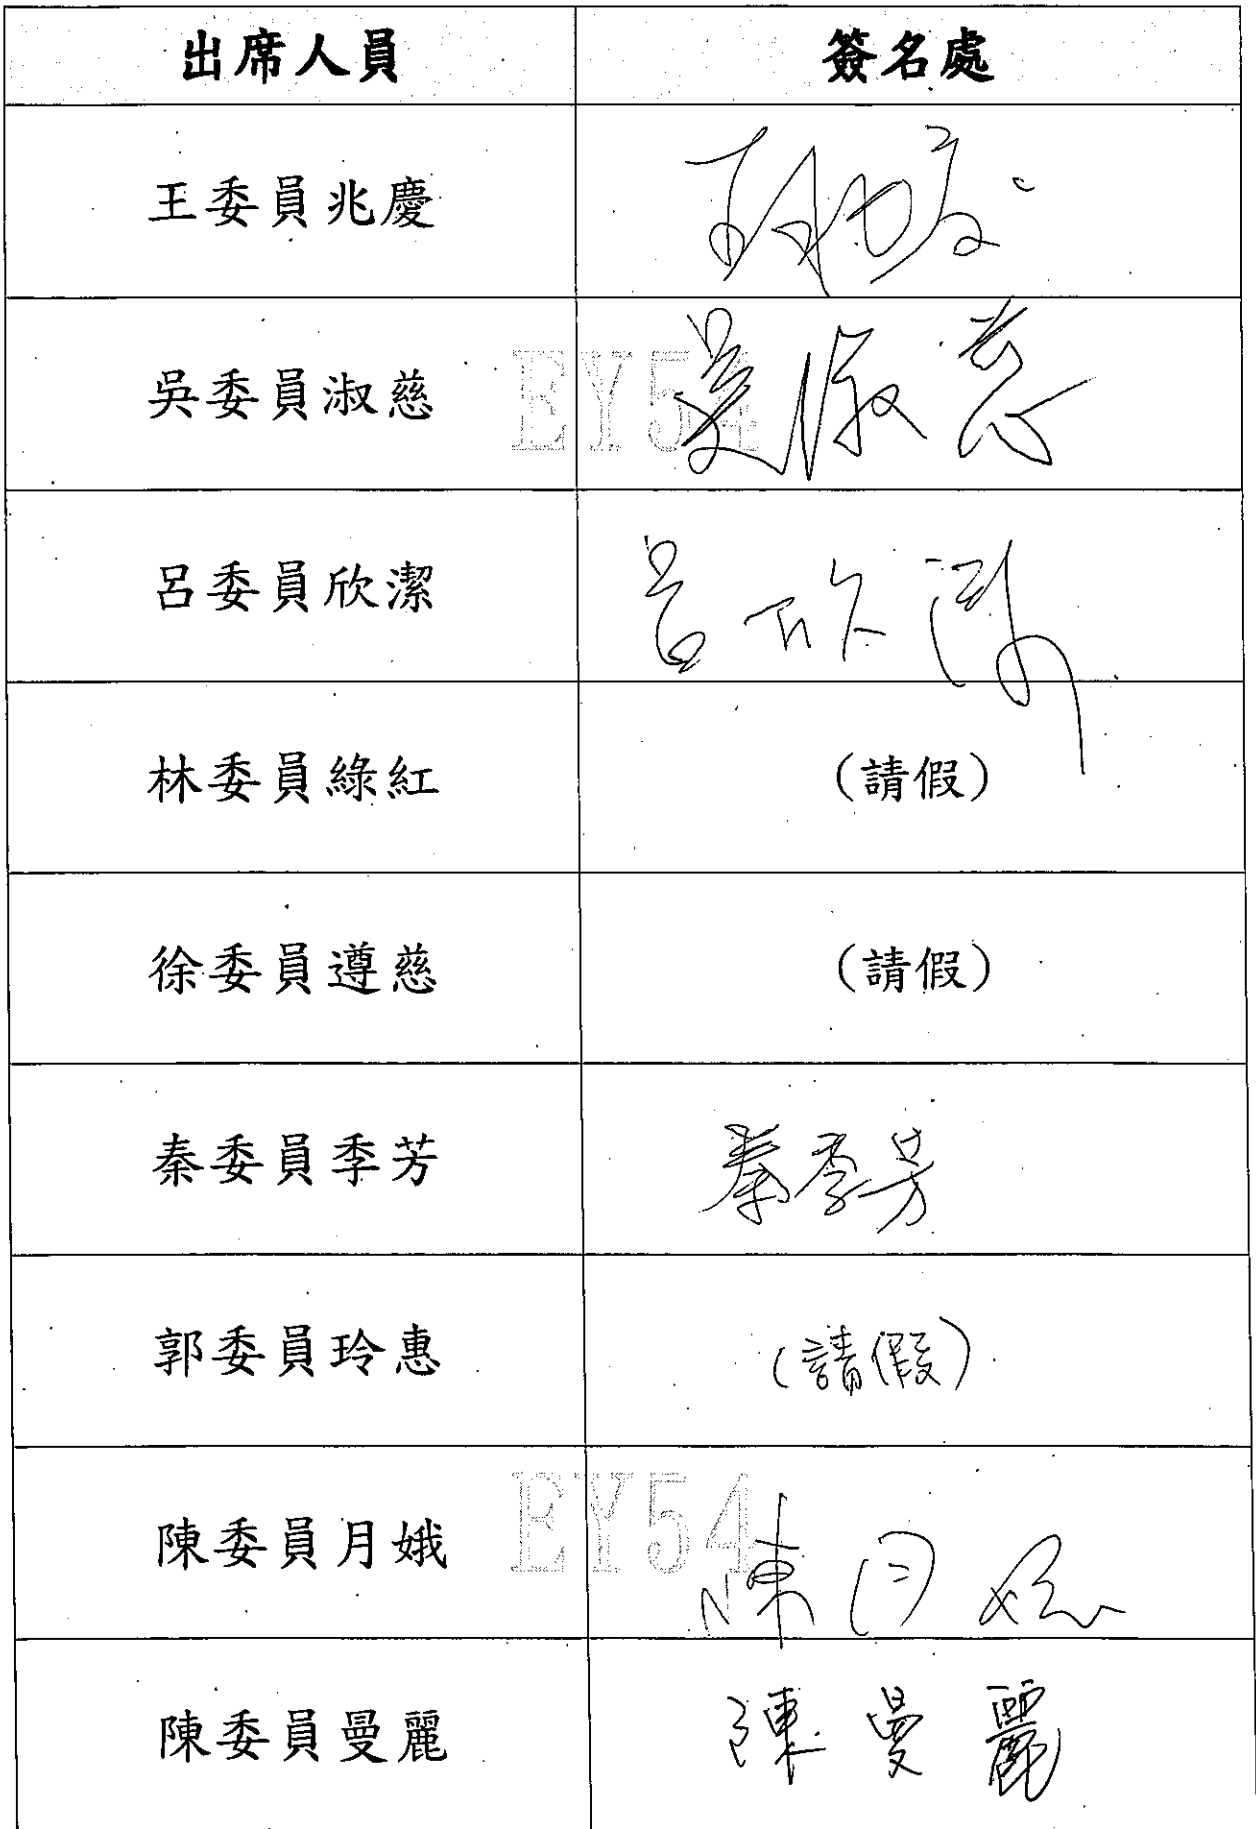 出席人員 簽名處
王委員兆慶 王兆慶
EY54
吳委員淑慈 吳淑慈
呂委員欣潔 呂欣潔
林委員綠紅 (請假)
徐委員遵慈 (請假)
秦委員季芳 秦季芳
郭委員玲惠 (請假)
EY54
陳委員月娥 陳月娥
陳委員曼麗 陳曼麗